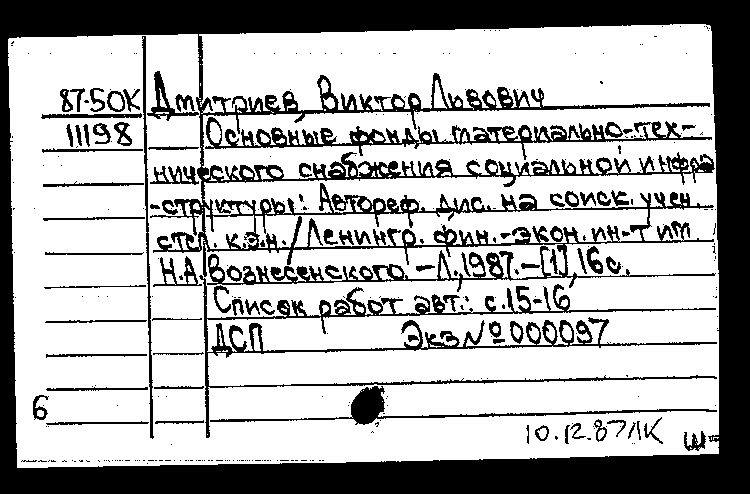 87-50К Дмитриев, Виктор Львович
11198 Основные фонды материально-тех-
нического снабжения социальной инфра
-структуры: Автореф. дис. на соиск. учен.
степ. к.э.н. / Ленингр. фин.-экон. ин-т им.
Н.А. Вознесенского. – Л., 1987. – [1], 16 с.
Список работ авт.: с. 15-16
ДСП Экз № 000097
6
10.12.87